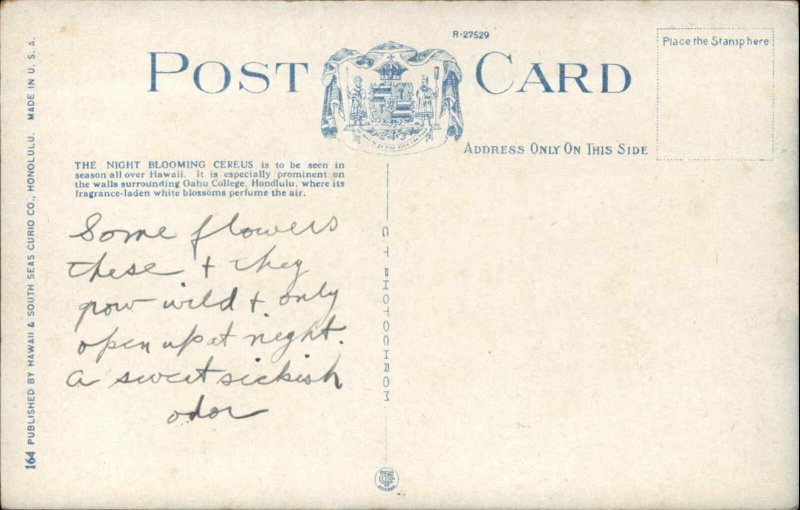 R-27529
Place the Stamp here
POST CARD
ADDRESS ONLY ON THIS SIDE
THE NIGHT BLOOMING CEREUS is to be seen in
season all over Hawaii. It is especially prominent on
the walls surrounding Oahu College, Honolulu, where its
fragrance-laden white blossoms perfume the air.
Some flowers
these + they
grow wild + only
open up at night.
a sweet sickish
odor
C T PHOTOCHROM
164 PUBLISHED BY HAWAII & SOUTH SEAS CURIO CO., HONOLULU. MADE IN U. S. A.